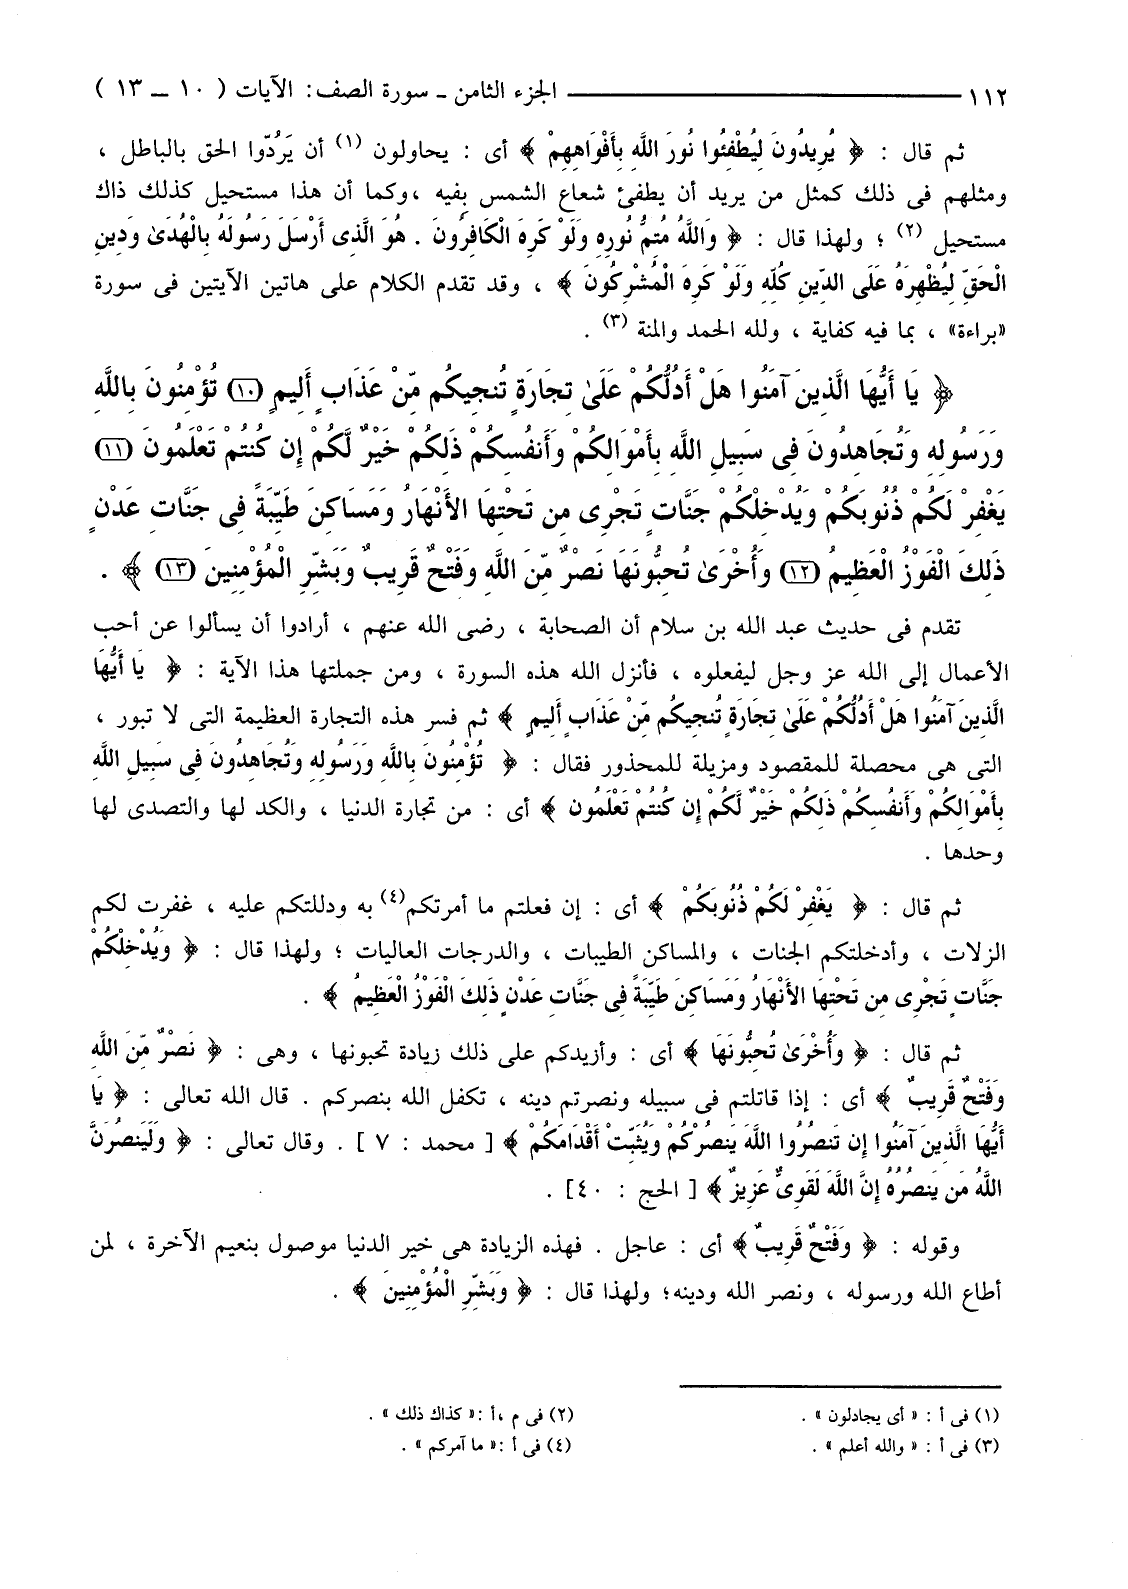 ١١٢ الجزء الثامن ـ سورة الصف: الآيات ( ١٠ ـ ١٣ )
ثم قال : ﴿ يُرِيدُونَ لِيُطْفِئُوا نُورَ اللَّهِ بِأَفْوَاهِهِمْ ﴾ أى : يحاولون (١) أن يَرُدّوا الحق بالباطل ،
ومثلهم فى ذلك كمثل من يريد أن يطفئ شعاع الشمس بِفيه ، وكما أن هذا مستحيل كذلك ذاك
مستحيل (٢) ؛ ولهذا قال : ﴿ وَاللَّهُ مُتِمُّ نُورِهِ وَلَوْ كَرِهَ الْكَافِرُونَ . هُوَ الَّذِى أَرْسَلَ رَسُولَهُ بِالْهُدَىٰ وَدِينِ
الْحَقِّ لِيُظْهِرَهُ عَلَى الدِّينِ كُلِّهِ وَلَوْ كَرِهَ الْمُشْرِكُونَ ﴾ ، وقد تقدم الكلام على هاتين الآيتين فى سورة
«براءة» ، بما فيه كفاية ، ولله الحمد والمنة (٣) .
﴿ يَا أَيُّهَا الَّذِينَ آمَنُوا هَلْ أَدُلُّكُمْ عَلَىٰ تِجَارَةٍ تُنجِيكُم مِّنْ عَذَابٍ أَلِيمٍ (١٠) تُؤْمِنُونَ بِاللَّهِ
وَرَسُولِهِ وَتُجَاهِدُونَ فِى سَبِيلِ اللَّهِ بِأَمْوَالِكُمْ وَأَنفُسِكُمْ ذَلِكُمْ خَيْرٌ لَّكُمْ إِن كُنتُمْ تَعْلَمُونَ (١١)
يَغْفِرْ لَكُمْ ذُنُوبَكُمْ وَيُدْخِلْكُمْ جَنَّاتٍ تَجْرِى مِن تَحْتِهَا الأَنْهَارُ وَمَسَاكِنَ طَيِّبَةً فِى جَنَّاتِ عَدْنٍ
ذَلِكَ الْفَوْزُ الْعَظِيمُ (١٢) وَأُخْرَىٰ تُحِبُّونَهَا نَصْرٌ مِّنَ اللَّهِ وَفَتْحٌ قَرِيبٌ وَبَشِّرِ الْمُؤْمِنِينَ (١٣) ﴾ .
تقدم فى حديث عبد الله بن سلام أن الصحابة ، رضى الله عنهم ، أرادوا أن يسألوا عن أحب
الأعمال إلى الله عز وجل ليفعلوه ، فأنزل الله هذه السورة ، ومن جملتها هذا الآية : ﴿ يَا أَيُّهَا
الَّذِينَ آمَنُوا هَلْ أَدُلُّكُمْ عَلَىٰ تِجَارَةٍ تُنجِيكُم مِّنْ عَذَابٍ أَلِيمٍ ﴾ ثم فسر هذه التجارة العظيمة التى لا تبور ،
التى هى محصلة للمقصود ومزيلة للمحذور فقال : ﴿ تُؤْمِنُونَ بِاللَّهِ وَرَسُولِهِ وَتُجَاهِدُونَ فِى سَبِيلِ اللَّهِ
بِأَمْوَالِكُمْ وَأَنفُسِكُمْ ذَلِكُمْ خَيْرٌ لَّكُمْ إِن كُنتُمْ تَعْلَمُونَ ﴾ أى : من تجارة الدنيا ، والكد لها والتصدى لها
وحدها .
ثم قال : ﴿ يَغْفِرْ لَكُمْ ذُنُوبَكُمْ ﴾ أى : إن فعلتم ما أمرتكم(٤) به ودللتكم عليه ، غفرت لكم
الزلات ، وأدخلتكم الجنات ، والمساكن الطيبات ، والدرجات العاليات ؛ ولهذا قال : ﴿ وَيُدْخِلْكُمْ
جَنَّاتٍ تَجْرِى مِن تَحْتِهَا الأَنْهَارُ وَمَسَاكِنَ طَيِّبَةً فِى جَنَّاتِ عَدْنٍ ذَلِكَ الْفَوْزُ الْعَظِيمُ ﴾ .
ثم قال : ﴿ وَأُخْرَىٰ تُحِبُّونَهَا ﴾ أى : وأزيدكم على ذلك زيادة تحبونها ، وهى : ﴿ نَصْرٌ مِّنَ اللَّهِ
وَفَتْحٌ قَرِيبٌ ﴾ أى : إذا قاتلتم فى سبيله ونصرتم دينه ، تكفل الله بنصركم . قال الله تعالى : ﴿ يَا
أَيُّهَا الَّذِينَ آمَنُوا إِن تَنصُرُوا اللَّهَ يَنصُرْكُمْ وَيُثَبِّتْ أَقْدَامَكُمْ ﴾ [ محمد : ٧ ] . وقال تعالى : ﴿ وَلَيَنصُرَنَّ
اللَّهُ مَن يَنصُرُهُ إِنَّ اللَّهَ لَقَوِىٌّ عَزِيزٌ ﴾ [ الحج : ٤٠] .
وقوله : ﴿ وَفَتْحٌ قَرِيبٌ ﴾ أى : عاجل . فهذه الزيادة هى خير الدنيا موصول بنعيم الآخرة ، لمن
أطاع الله ورسوله ، ونصر الله ودينه؛ ولهذا قال : ﴿ وَبَشِّرِ الْمُؤْمِنِينَ ﴾ .
(١) فى أ : « أى يجادلون » . (٢) فى م ،أ :« كذاك ذلك » .
(٣) فى أ : « والله أعلم » . (٤) فى أ :« ما آمركم » .